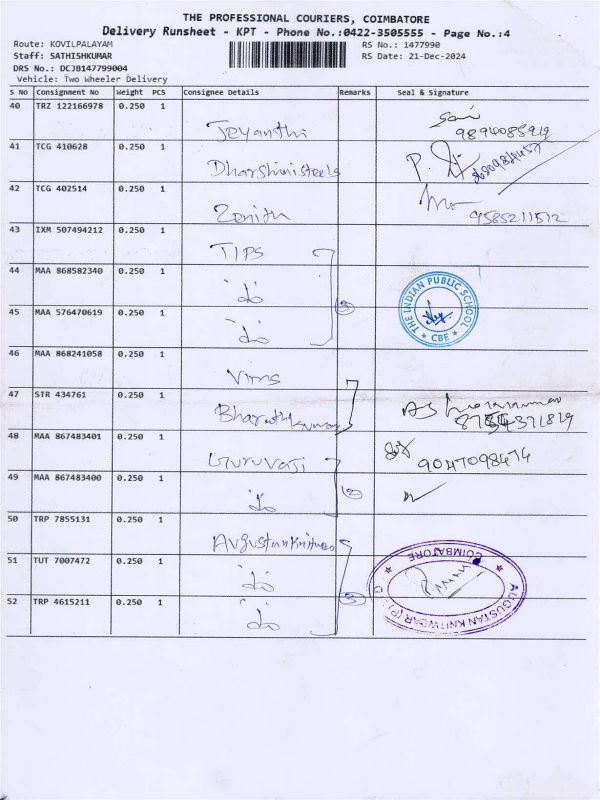 THE PROFESSIONAL COURIERS, COIMBATORE
Delivery Runsheet - KPT - Phone No.:0422-3505555 - Page No.:4
Route: KOVILPALAYAM RS No.: 1477990
Staff: SATHISHKUMAR RS Date: 21-Dec-2024
DRS No.: DCJB147799004
Vehicle: Two Wheeler Delivery
S No Consignment No Weight PCS Consignee Details Remarks Seal & Signature
40 TRZ 122166978 0.250 1 Jeyanthi
41 TCG 410628 0.250 1 Dharshini steels
42 TCG 402514 0.250 1 Zenith 9585211512
43 IXM 507494212 0.250 1 TIPS
44 MAA 868582340 0.250 1 do 3 THE INDIAN PUBLIC SCHOOL CBE
45 MAA 576470619 0.250 1 do
46 MAA 868241058 0.250 1 Vims
47 STR 434761 0.250 1 Bharathkumar
48 MAA 867483401 0.250 1 Guruvasi 9047098474
49 MAA 867483400 0.250 1 do 2
50 TRP 7855131 0.250 1 Augustan Knitwear
51 TUT 7007472 0.250 1 do AUGUSTAN KNITWEAR (P) COIMBATORE
52 TRP 4615211 0.250 1 do 3